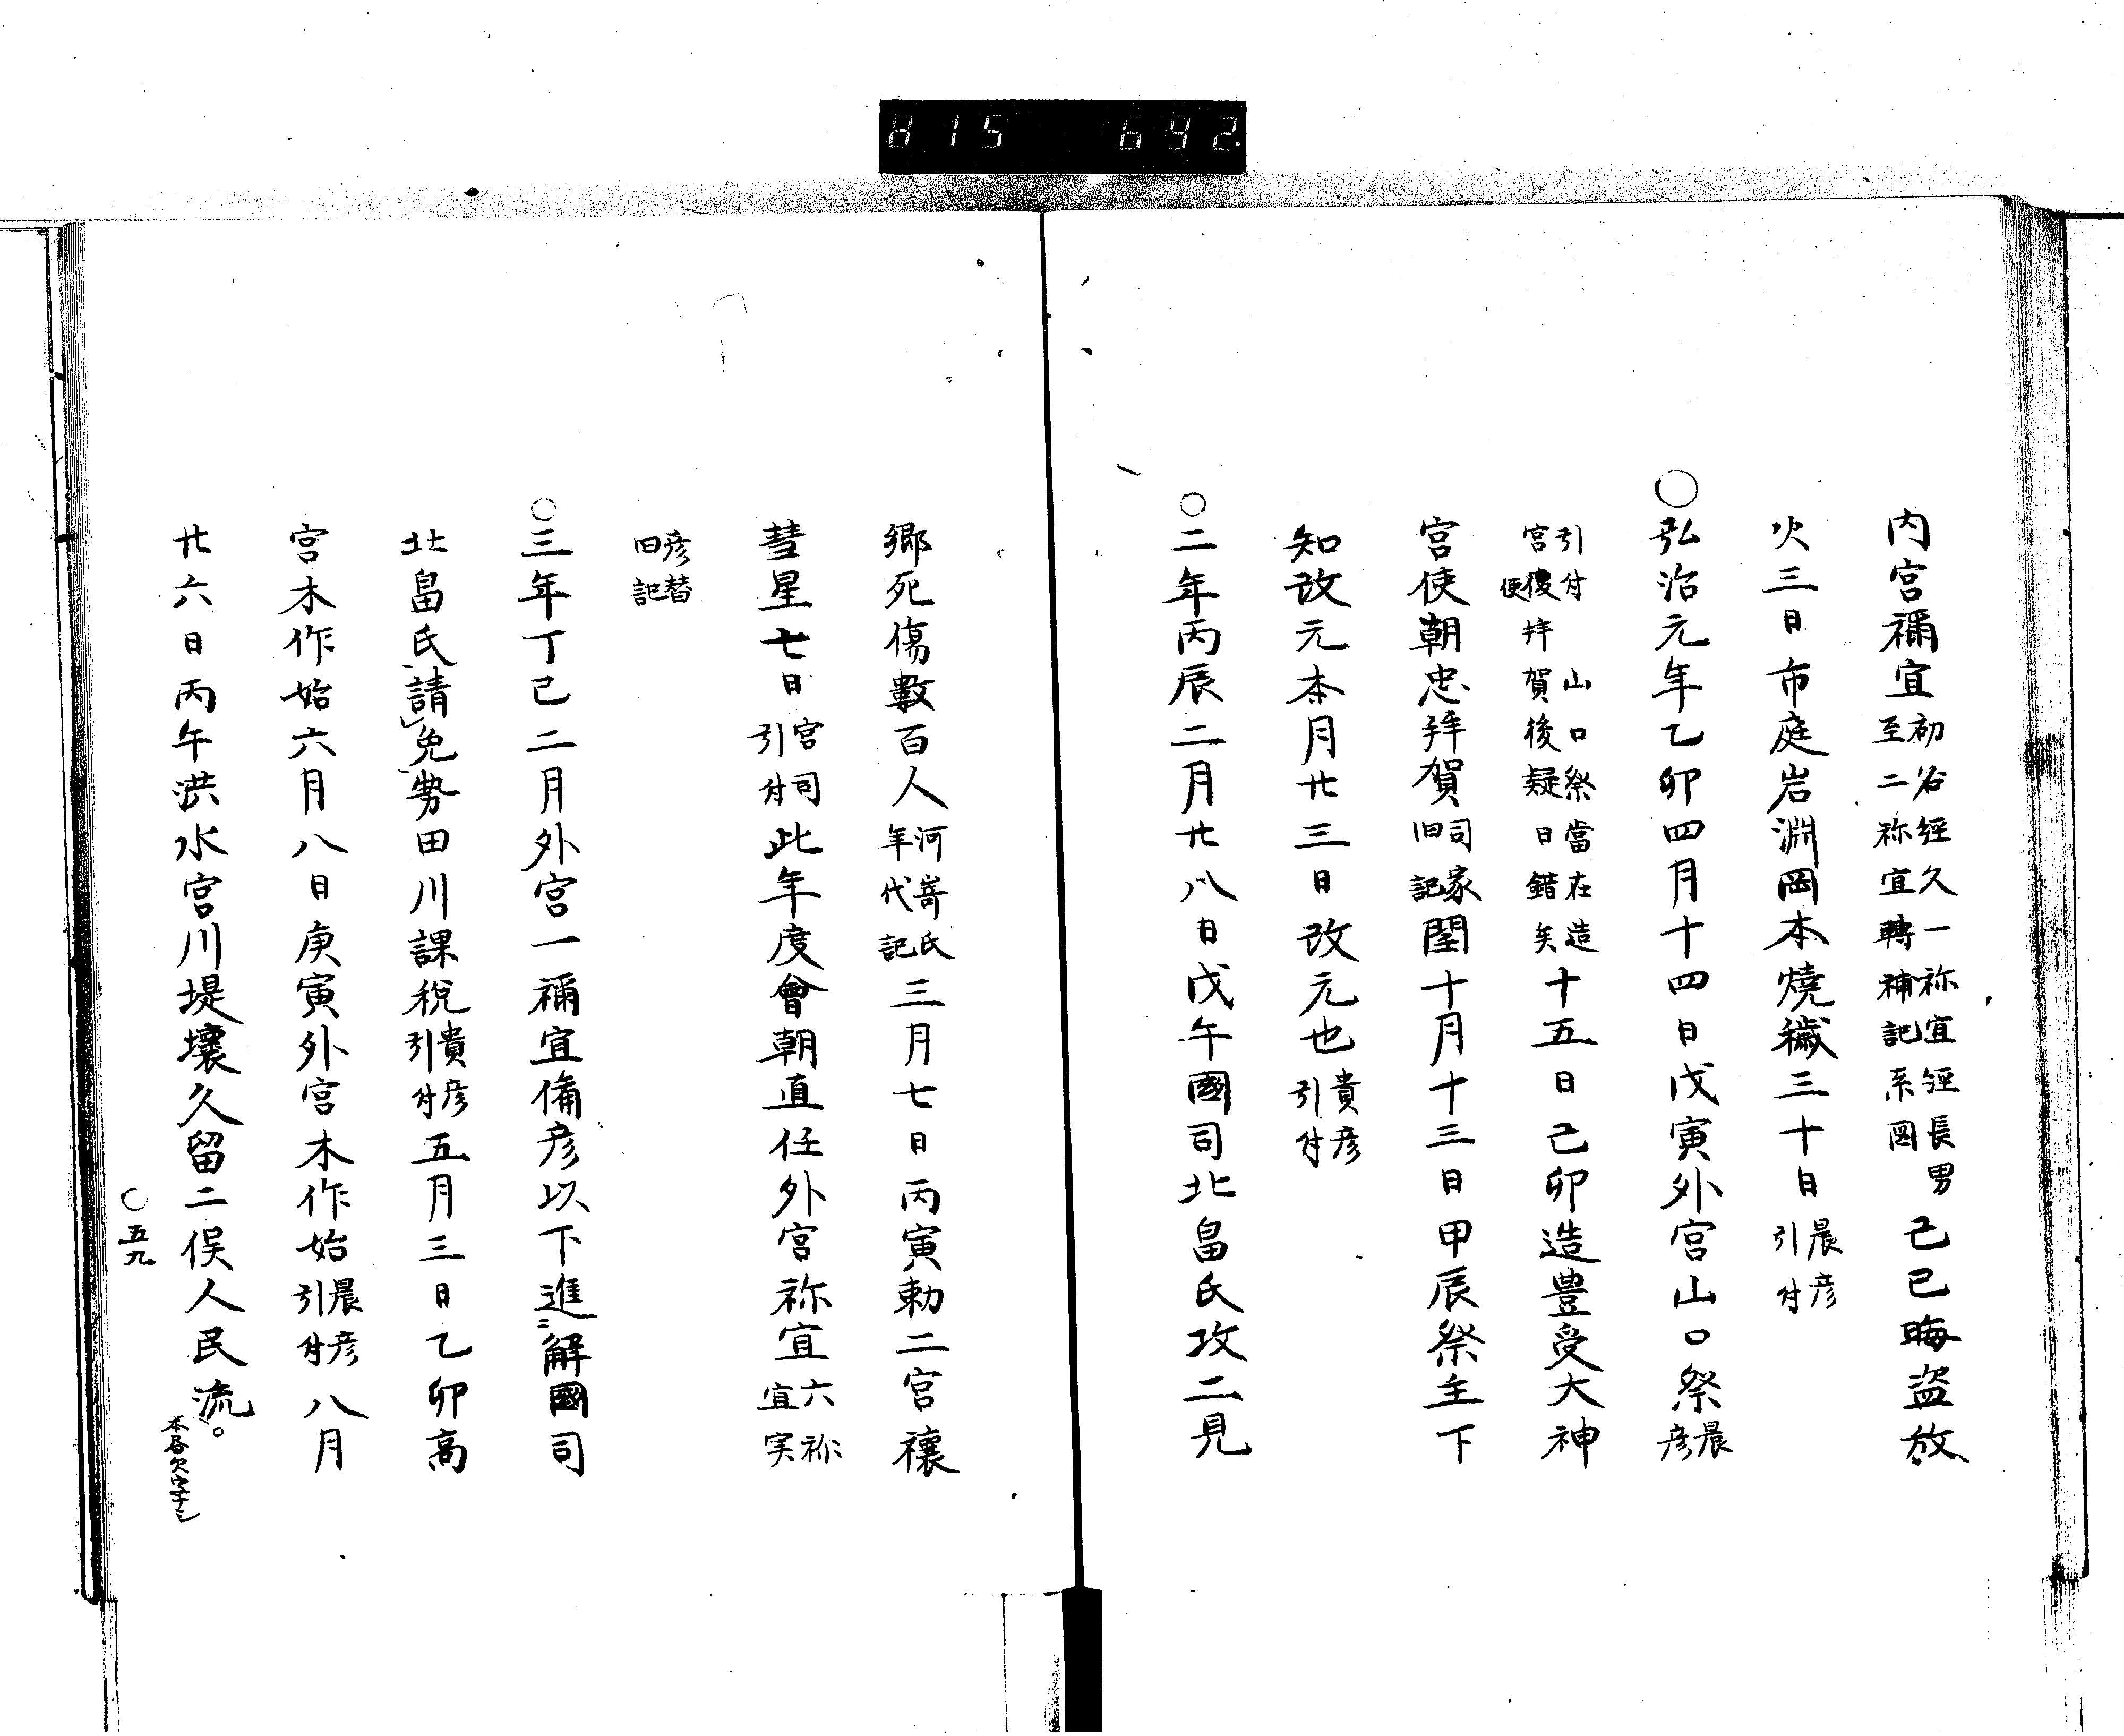 815 642.
内宮禰宜初谷経久一祢宜経長男至二祢宜轉補記系図己巳晦盗放
火三日市庭岩淵岡本燒穢三十日晨彦引付
○弘治元年乙卯四月十四日戊寅外宮山口祭晨彦
引付 山口祭當在造宮使拝賀後疑日錯矣十五日己卯造豊受大神
宮使朝忠拜賀司家旧記閏十月十三日甲辰祭主下
知改元本月廿三日改元也貴彦引付
○二年丙辰二月廿八日戊午國司北畠氏攻二見
郷死傷數百人河嵜氏年代記三月七日丙寅勅二宮禳
彗星七日宮司引付此年度會朝直任外宮祢宜六祢宜実
彦替旧記
○三年丁巳二月外宮一禰宜備彦以下進解國司
北畠氏請免勢田川課税貴彦引付五月三日乙卯高
宮木作始六月八日庚寅外宮木作始晨彦引付八月
廿六日丙午洪水宮川堤壞久留二俣人民流。
○五九